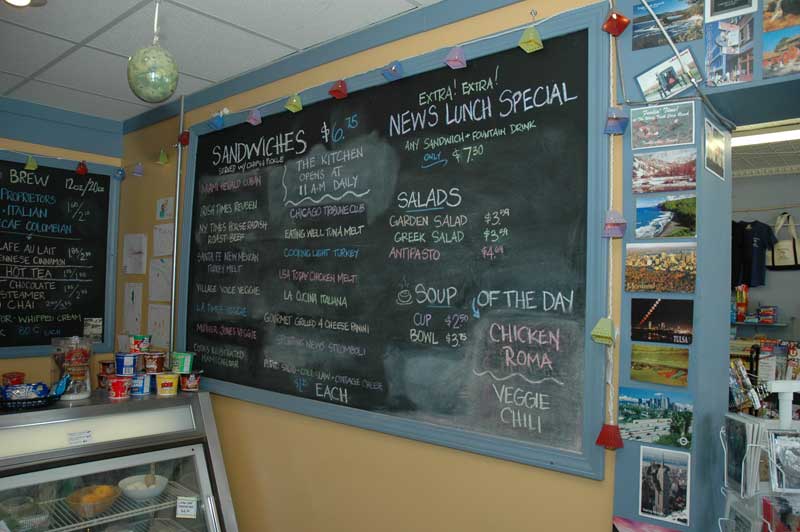 BREW
12oz/20oz
PROPRIETORS
ITALIAN
COLOMBIAN
CAFE AU LAIT
CINNAMON
HOT TEA
CHOCOLATE
STEAMER
CHAI
WHIPPED CREAM
EACH
SANDWICHES $6.75
SERVED W/ CHIPS & PICKLE
THE KITCHEN
OPENS AT
11 A.M DAILY
MIAMI HERALD CUBAN
IRISH TIMES REUBEN
NY TIMES HORSERADISH
ROAST BEEF
SANTA FE NEW MEXICAN
TURKEY MELT
VILLAGE VOICE VEGGIE
LA TIMES VEGGIE
MOTHER JONES VEGGIE
COOKS ILLUSTRATED
CHICAGO TRIBUNE CLUB
EATING WELL TUNA MELT
COOKING LIGHT TURKEY
USA TODAY CHICKEN MELT
LA CUCINA ITALIANA
GOURMET GRILLED 4 CHEESE PANINI
SPORTING NEWS STROMBOLI
COTTAGE CHEESE
EACH
EXTRA! EXTRA!
NEWS LUNCH SPECIAL
ANY SANDWICH + FOUNTAIN DRINK
ONLY $7.30
SALADS
GARDEN SALAD $3.59
GREEK SALAD $3.59
ANTIPASTO $4.99
SOUP OF THE DAY
CUP $2.50
BOWL $3.75
CHICKEN
ROMA
VEGGIE
CHILI
TULSA